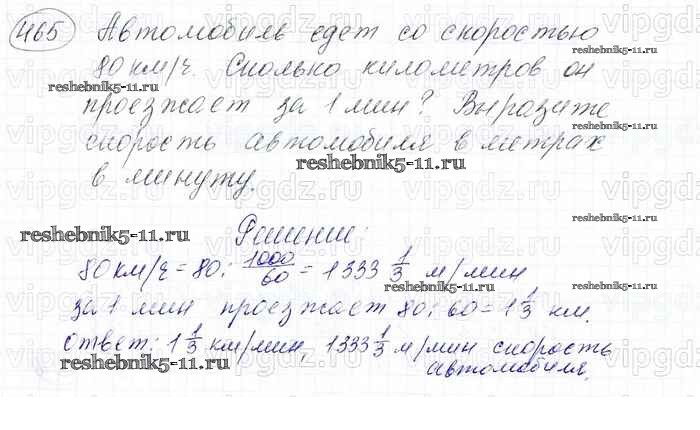 465 Автомобиль едет со скоростью
80 км/ч. Сколько километров он
проезжает за 1 мин? Выразите
скорость автомобиля в метрах
в минуту.
Решение:
80 км/ч = 80 : 1000/60 = 1333 1/3 м/мин
за 1 мин проезжает 80 : 60 = 1 1/3 км.
ответ: 1 1/3 км/мин, 1333 1/3 м/мин скорость
автомобиля.
reshebnik5-11.ru
reshebnik5-11.ru
reshebnik5-11.ru
reshebnik5-11.ru
reshebnik5-11.ru
reshebnik5-11.ru
reshebnik5-11.ru
reshebnik5-11.ru
reshebnik5-11.ru
vipgdz.ru